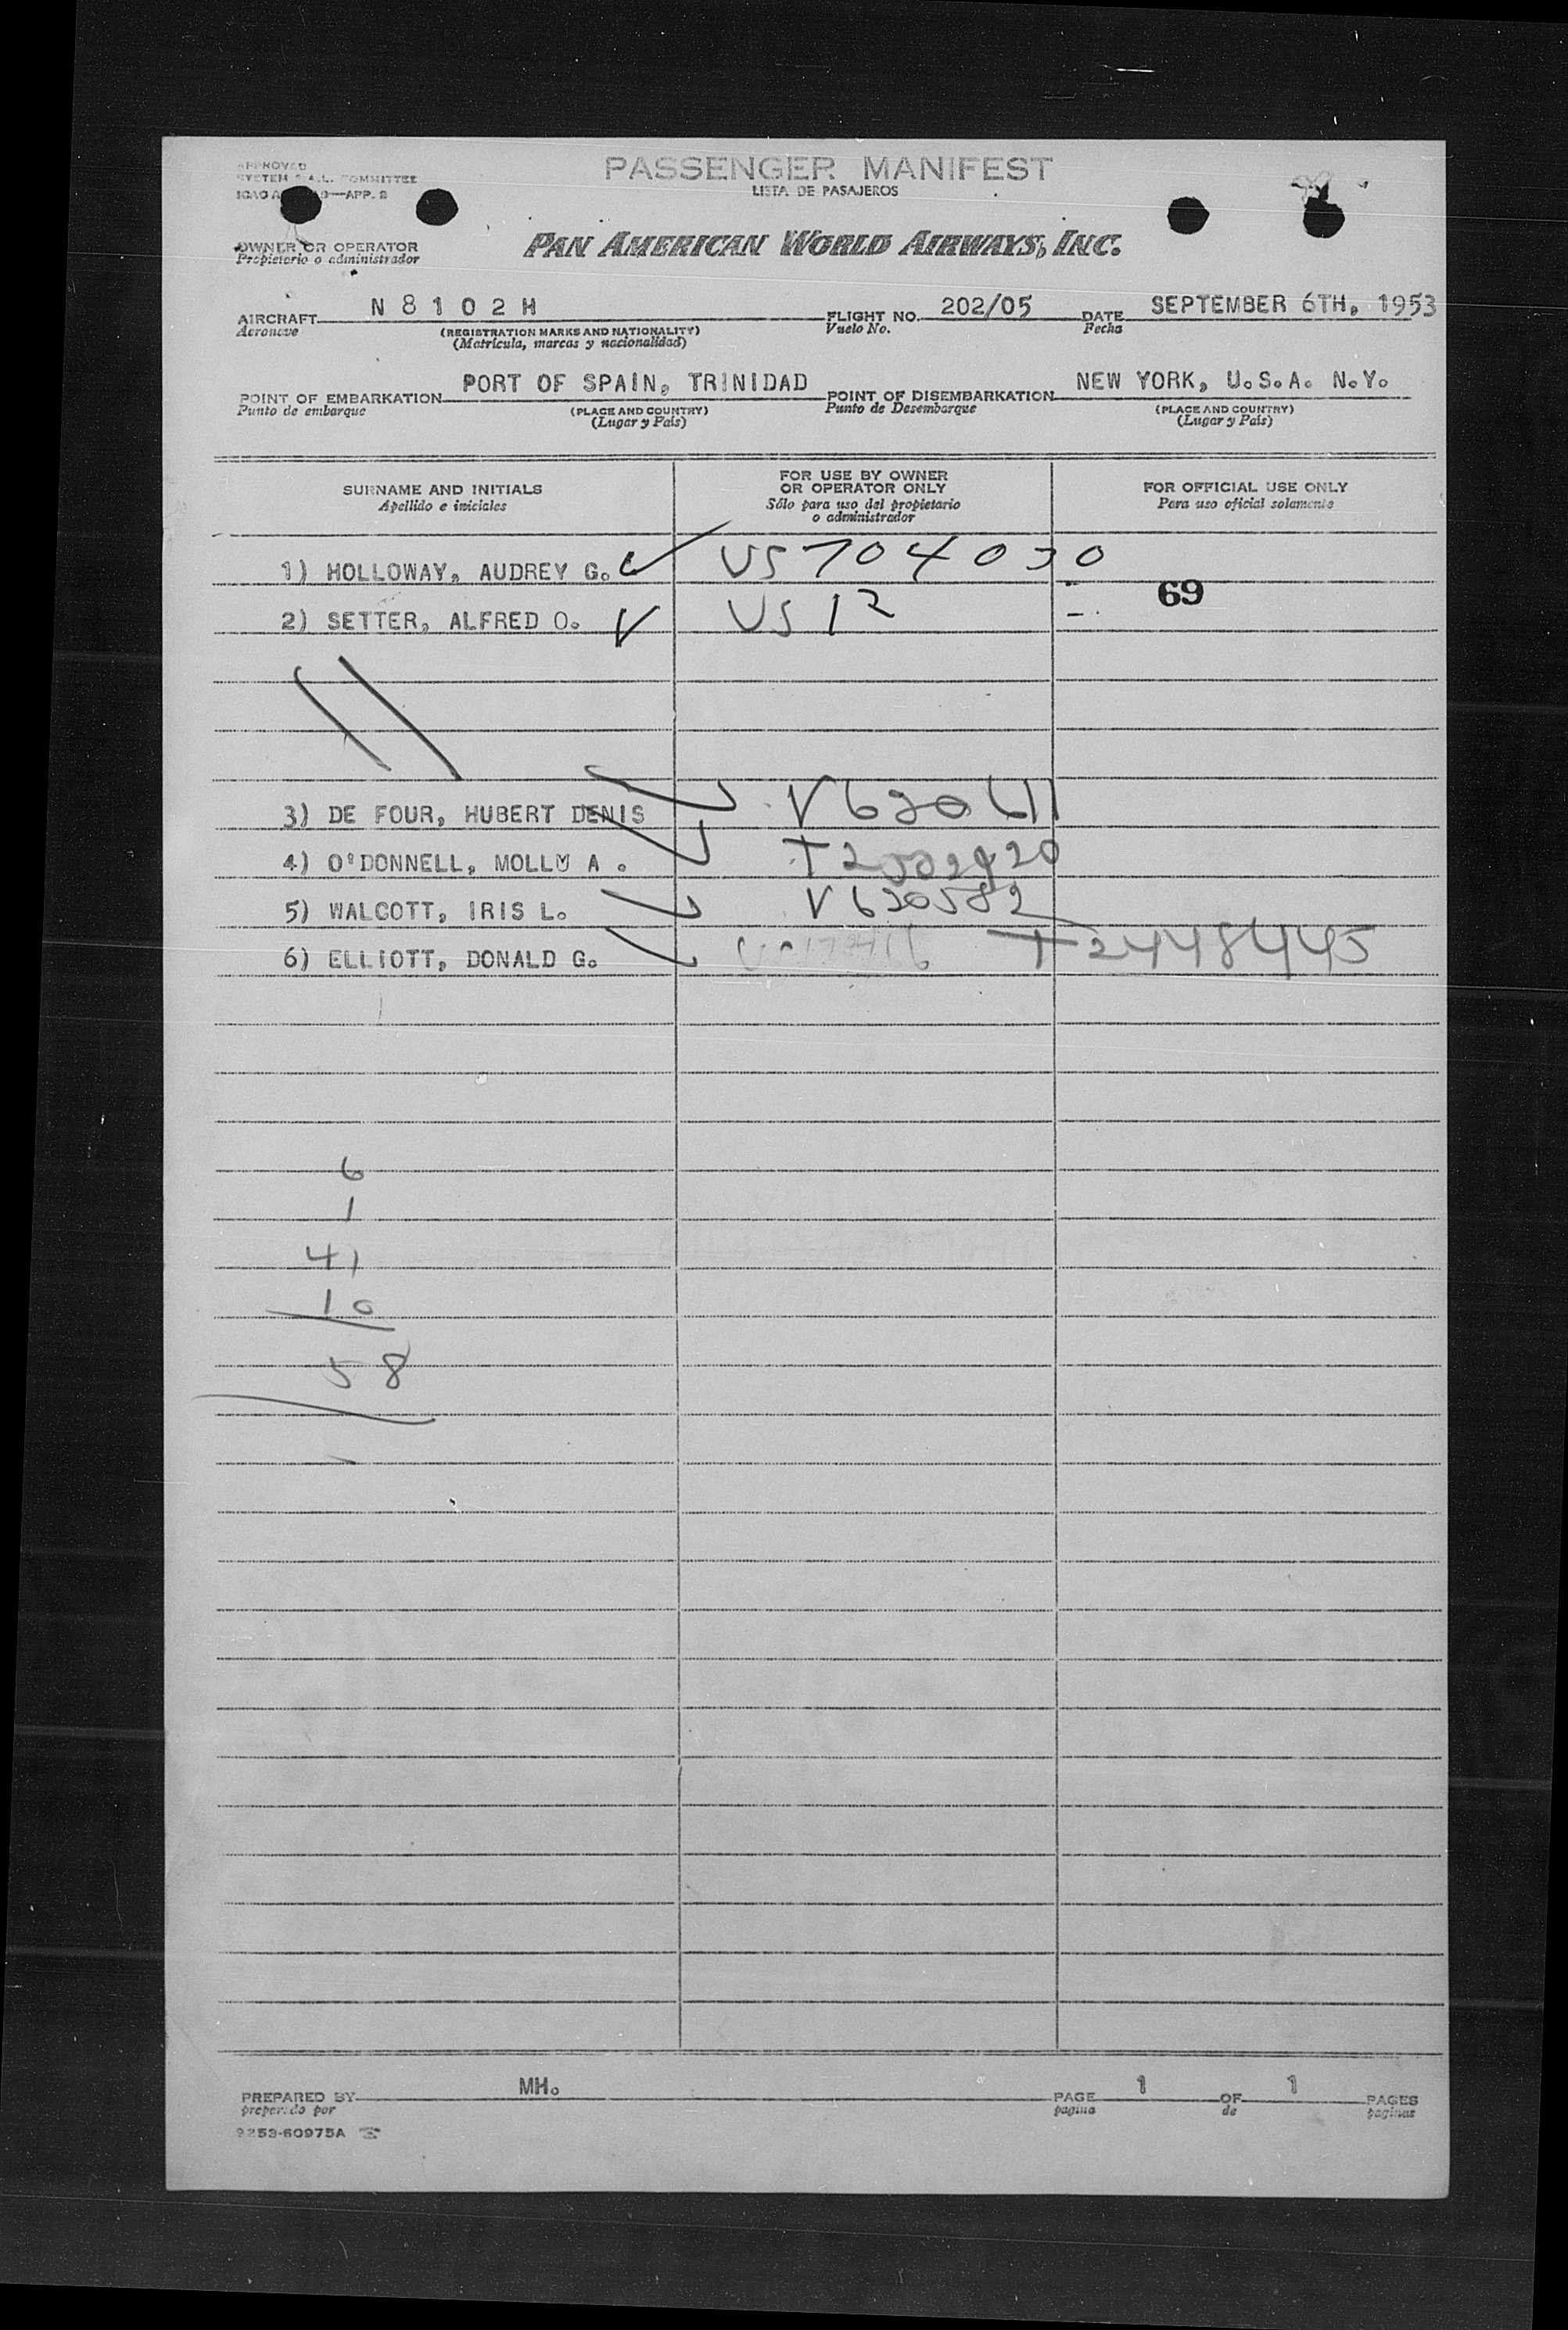 APPROVED
PASSENGER MANIFEST
LISTA DE PASAJEROS
OWNER OR OPERATOR
Propietario o administrador
PAN AMERICAN WORLD AIRWAYS, INC.
AIRCRAFT N 8 1 0 2 H FLIGHT NO. 202/05 DATE SEPTEMBER 6TH, 1953
Aeronave (REGISTRATION MARKS AND NATIONALITY) Vuelo No. Fecha
(Matrícula, marcas y nacionalidad)
POINT OF EMBARKATION PORT OF SPAIN, TRINIDAD POINT OF DISEMBARKATION NEW YORK, U.S.A. N.Y.
Punto de embarque (PLACE AND COUNTRY) Punto de Desembarque (PLACE AND COUNTRY)
(Lugar y País) (Lugar y País)
SURNAME AND INITIALS
Apellido e iniciales
FOR USE BY OWNER
OR OPERATOR ONLY
Sólo para uso del propietario
o administrador
FOR OFFICIAL USE ONLY
Para uso oficial solamente
1) HOLLOWAY, AUDREY G. US 704030
69
2) SETTER, ALFRED O. US 12
3) DE FOUR, HUBERT DENIS
4) O'DONNELL, MOLLY A.
5) WALCOTT, IRIS L. V 620582
6) ELLIOTT, DONALD G. T 2448445
6
1
41
10
58
PREPARED BY MH. PAGE 1 OF 1 PAGES
preparado por pagina de paginas
9253-60975A